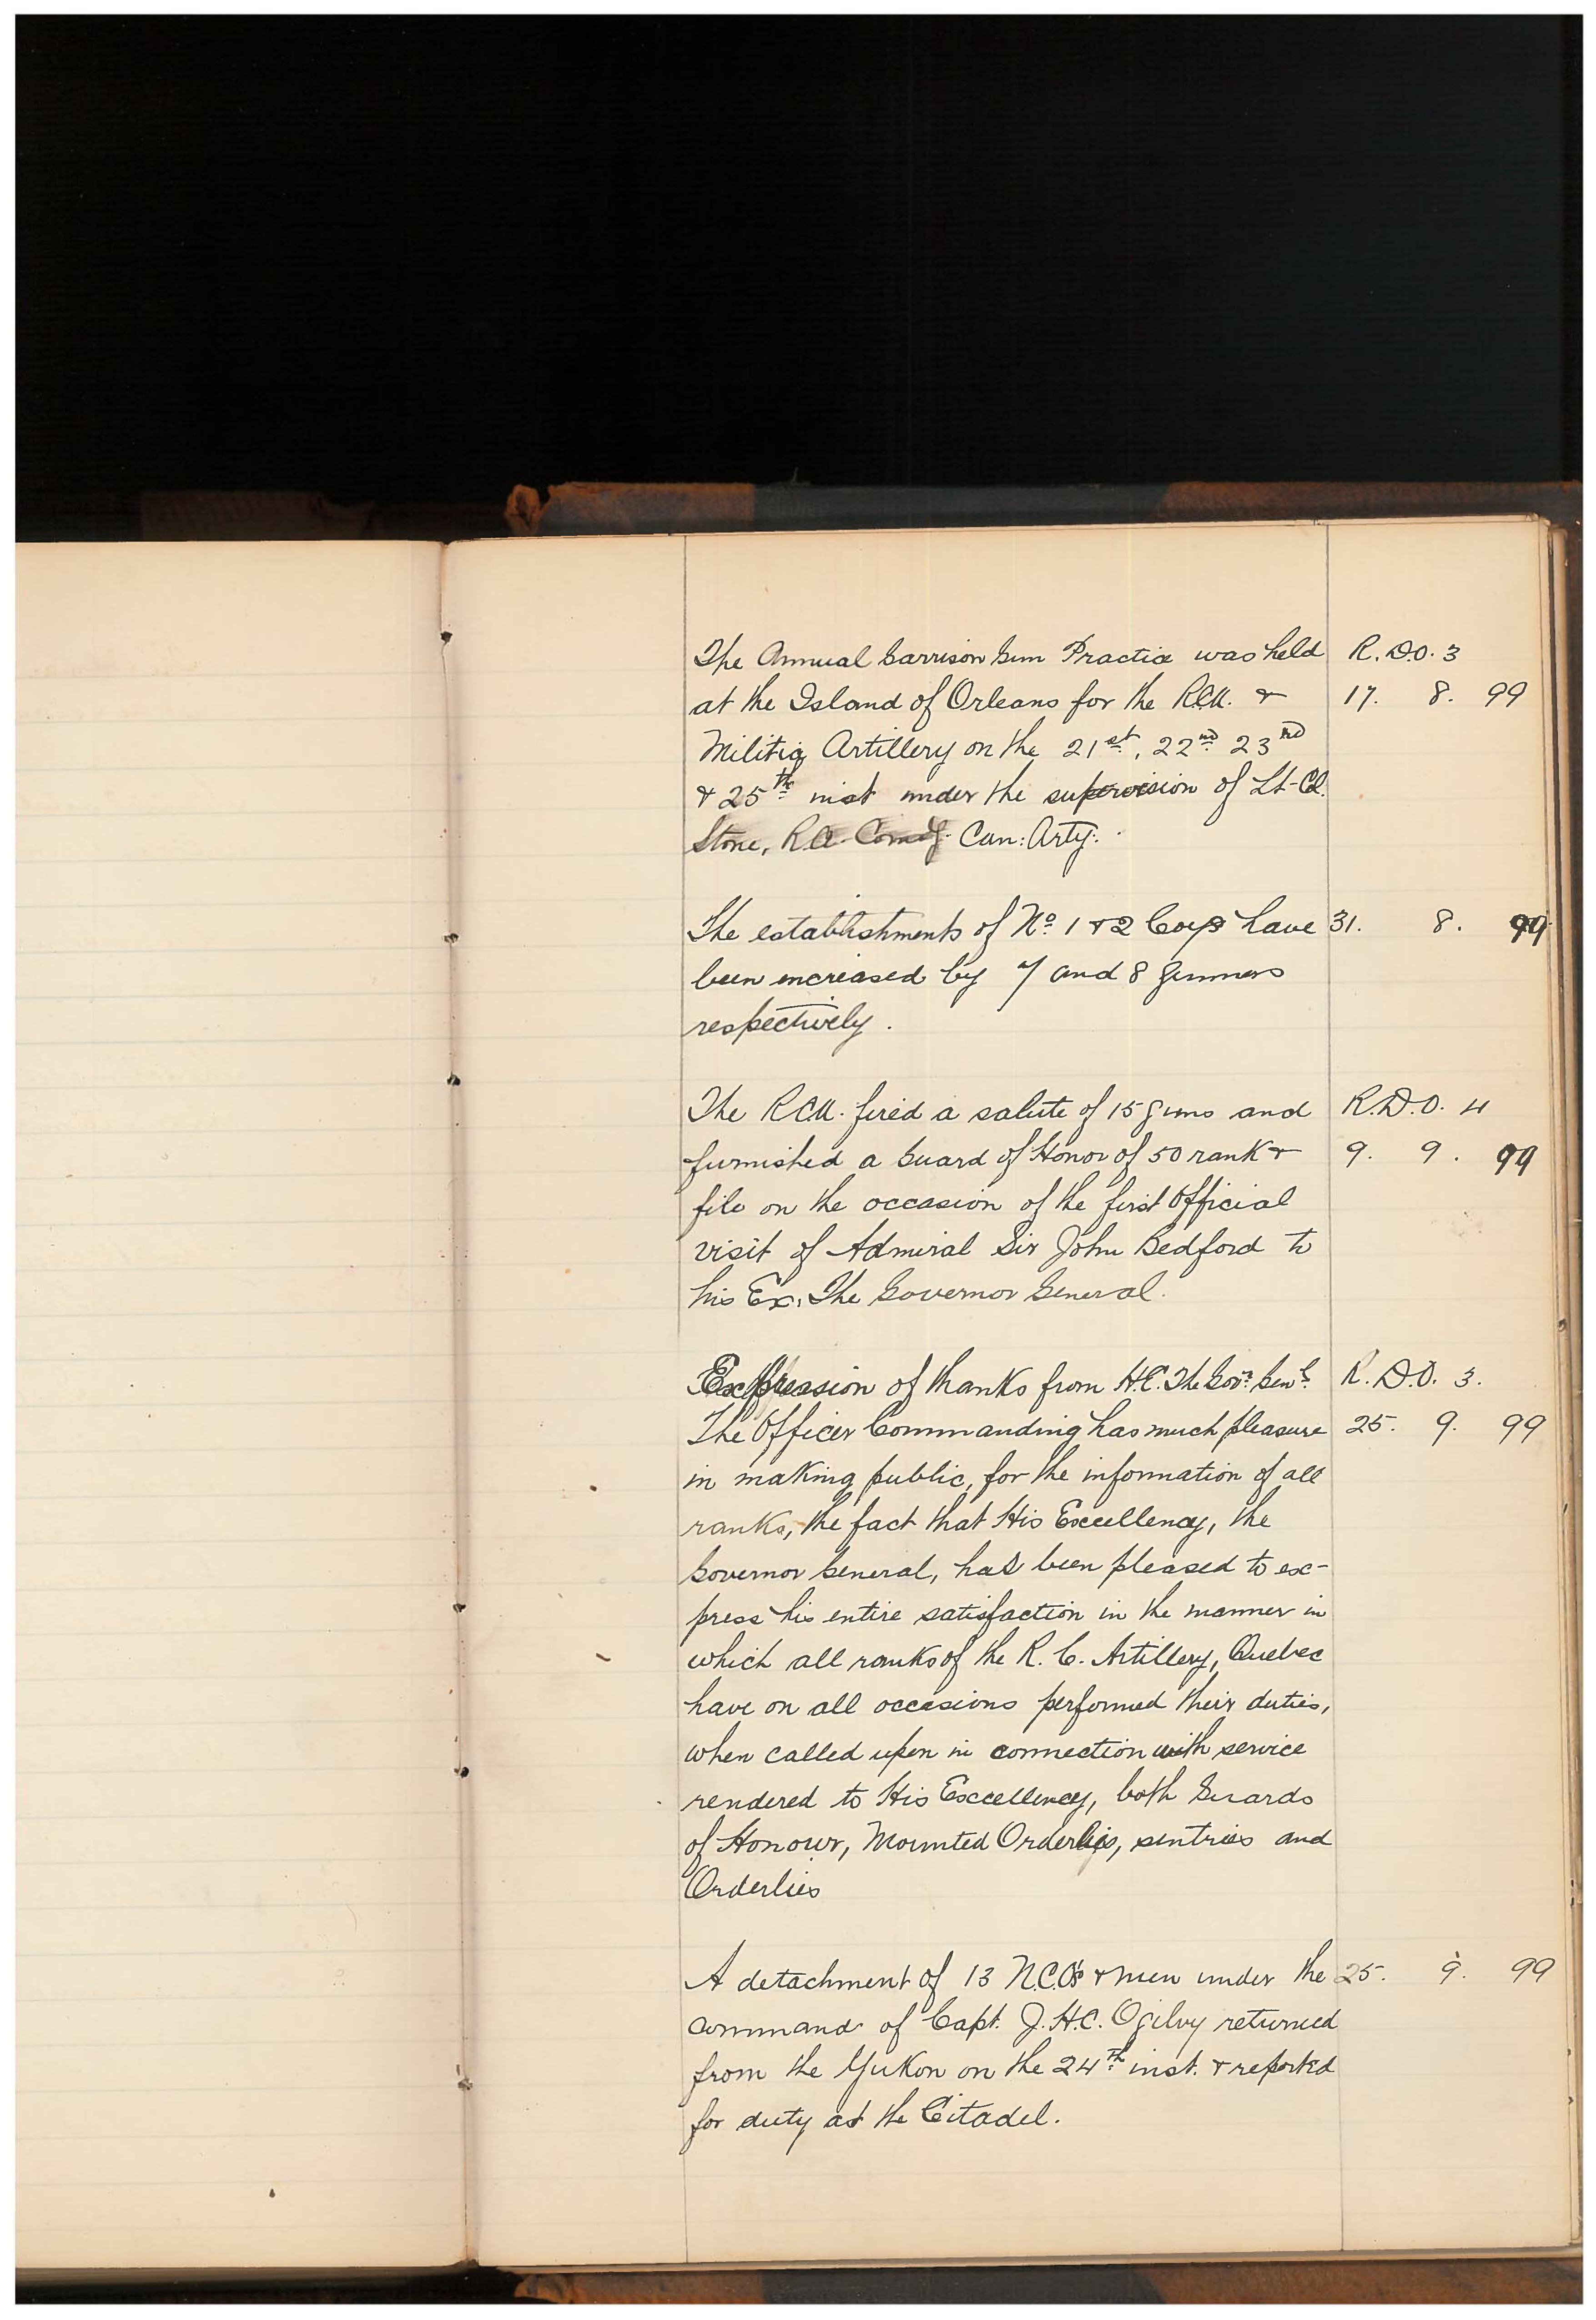 The Annual Garrison Gun Practice was held R.D.O. 3
at the Island of Orleans for the R.C.A. & 17. 8. 99
Militia Artillery on the 21st, 22nd 23rd
& 25th inst under the supervision of Lt-Col.
Stone, R.A. Comdg. Can: Arty.
The establishments of No. 1 & 2 Coys have 31. 8. 99
been increased by 7 and 8 gunners
respectively.
The R.C.A. fired a salute of 15 guns and R.D.O. 4
furnished a Guard of Honor of 50 rank & 9. 9. 99
file on the occasion of the first Official
visit of Admiral Sir John Bedford to
his Ex. The Governor General.
Expression of thanks from H.E. The Govr. Genl. R.D.O. 3.
The Officer Commanding has much pleasure 25. 9. 99
in making public, for the information of all
ranks, the fact that His Excellency, the
Governor General, has been pleased to ex-
press his entire satisfaction in the manner in
which all ranks of the R. C. Artillery, Quebec
have on all occasions performed their duties,
when called upon in connection with service
rendered to His Excellency, both Guards
of Honour, Mounted Orderlies, sentries and
Orderlies
A detachment of 13 N.C.O's & men under the 25. 9. 99
command of Capt. J.H.C. Ogilvy returned
from the Yukon on the 24th inst. & reported
for duty at the Citadel.